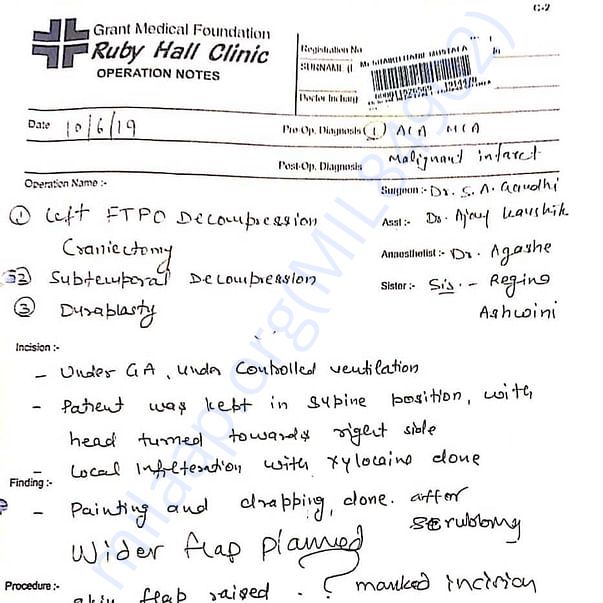 C-2
Grant Medical Foundation
Ruby Hall Clinic
OPERATION NOTES
Registration No
SURNAME
Doctor Incharg
Date 10/6/19
Pre-Op. Diagnosis (L) ACA MCA
Post-Op. Diagnosis Malignant infarct
Operation Name :-
Surgeon :- Dr. S. A. Gandhi
① Left FTPO Decompression
Asst :- Dr. Ajay Kaushik
Craniectomy
Anaesthetist :- Dr. Agashe
② Subtemporal Decompression
Sister :- Sis. - Regina
③ Duraplasty
Ashwini
Incision :-
- Under GA, under controlled ventilation
- Patient was kept in supine position, with
head turned towards right side
- Local Infilteration with xylocaine done
Finding :-
- Painting and drapping done. after
scrubbing
Wider flap planned
Procedure :-
skin flap raised. marked incision
milaap.org(MIL84962)